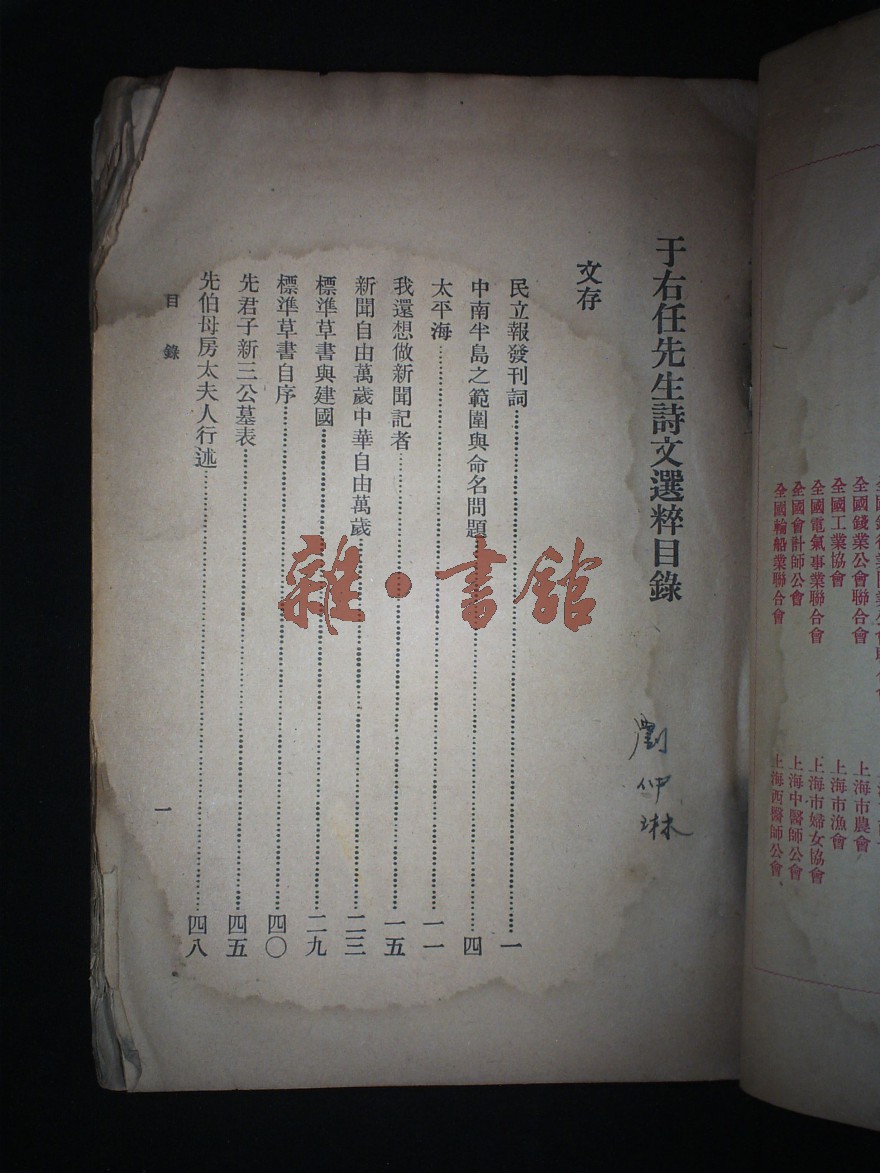 全國錢業公會聯合會
全國工業協會
全國電氣事業聯合會
全國會計師公會
全國輪船業聯合會
上海市農會
上海市漁會
上海市婦女協會
上海中醫師公會
上海西醫師公會
于右任先生詩文選粹目錄
劉仲琳
文存
民立報發刊詞……一
中南半島之範圍與命名問題……四
太平海……一一
我還想做新聞記者……一五
新聞自由萬歲中華自由萬歲……二三
標準草書與建國……二九
標準草書自序……四〇
先君子新三公墓表……四五
先伯母房太夫人行述……四八
目錄
一
雜·書館